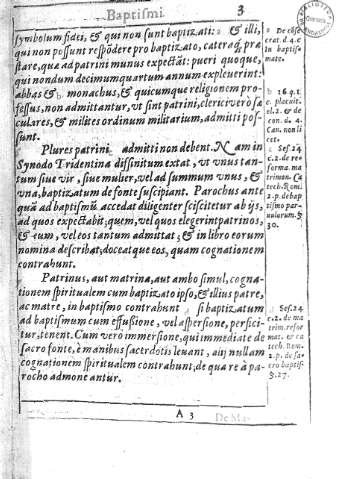 Baptismi 3
symbolum fidei, & qui non sunt baptizati: a & illi,
qui non possunt respōdere pro baptizato, cateraq; præ
stare, quæ ad patrini munus expectāt: pueri quoque,
qui nondum decimumquartum annum expleuerint:
abbas & b monachus, & quicumque religionem pro
fessus, non admittantur, vt sint patrini, clerici verò sæ
culares, & milites ordinum militarium, admitti pos-
sunt.
Plures patrini admitti non debent. Nam in
Synodo Tridentina diffinitum extat, vt vnus tan-
tum siue vir, siue mulier, vel ad summum vnus, &
vna, baptizatum de fonte suscipiant. Parochus ante
quā ad baptismū accedat diligenter sciscitetur ab ijs,
ad quos expectabit; quem, vel quos elegerint patrinos,
& eum, vel eos tantum admittat; & in libro eorum
nomina describat; doceat que eos, quam cognationem
contrahunt.
Patrinus, aut matrina, aut ambo simul, cogna-
tionem spiritualem cum baptizato ipso, & illius patre,
ac matre, in baptismo contrahunt si baptizatum
ad baptismum cum effussione, vel aspersione, perfici-
tur, tenent. Cum vero immersione, qui immediate de
sacro fonte, è manibus sacerdotis leuant, alij nullam
cognationem spiritualem contrahunt; de qua re à pa-
rocho admoneantur.
A 3
a De cōse
crat. d. 4. c
In baptis
mate.
b 16. q. 1.
c. placuit.
el. 2. & de
con. d. 4.
Can. non li
cet.
Ses. 24
c. 2. de re-
forma. ma
trimon. Ca
tech. Romi.
2. p. de bap
tismo par-
uulorum. §
30.
Ses. 24
c. 2. de ma
trim. refor
mat. & ca
tech. Rom.
2. p. de sa-
cro baptis-
§. 27.